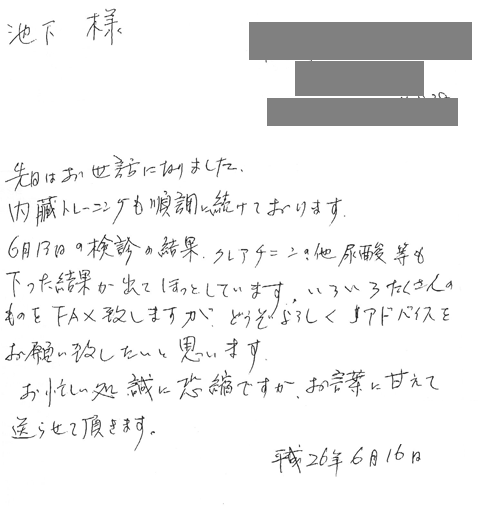 池下 様
先日はお世話になりました。
内臓トレーニングも順調に続けております。
6月13日の検診の結果、クレアチニンの他尿酸等も
下った結果が出てほっとしています。いろいろたくさんの
ものをFAX致しますが、どうぞよろしくアドバイスを
お願い致したいと思います。
お忙しい処 誠に恐縮ですが、お言葉に甘えて
送らせて頂きます。
平成26年6月16日